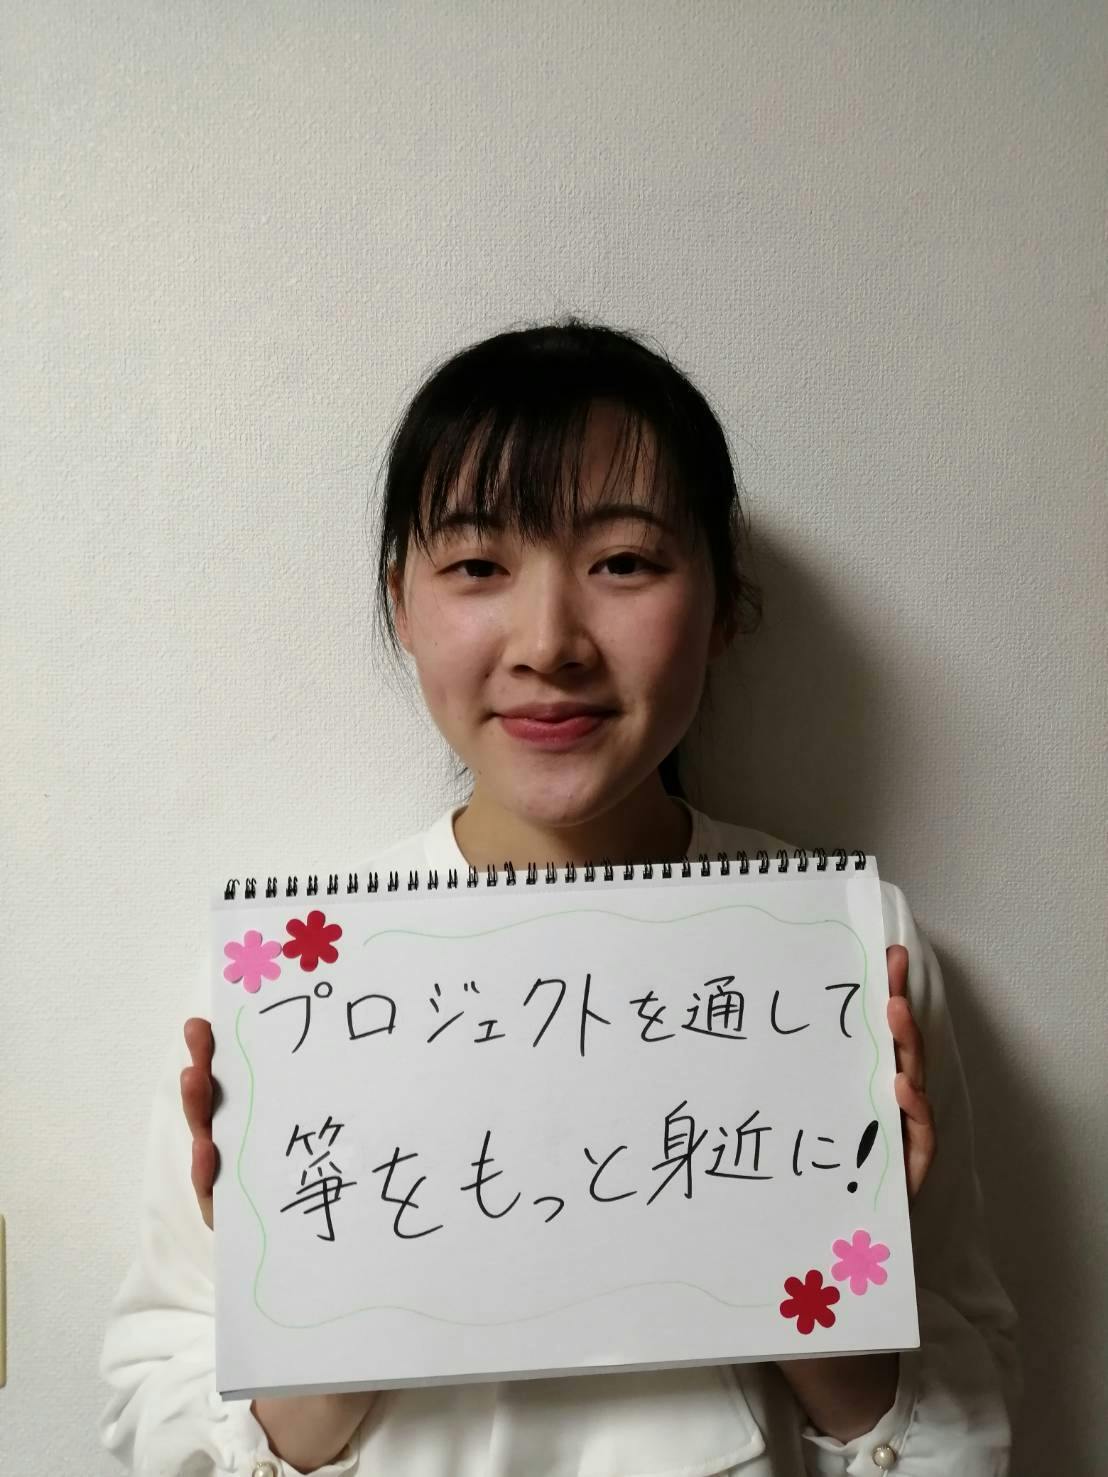 プロジェクトを通して
箏をもっと身近に!